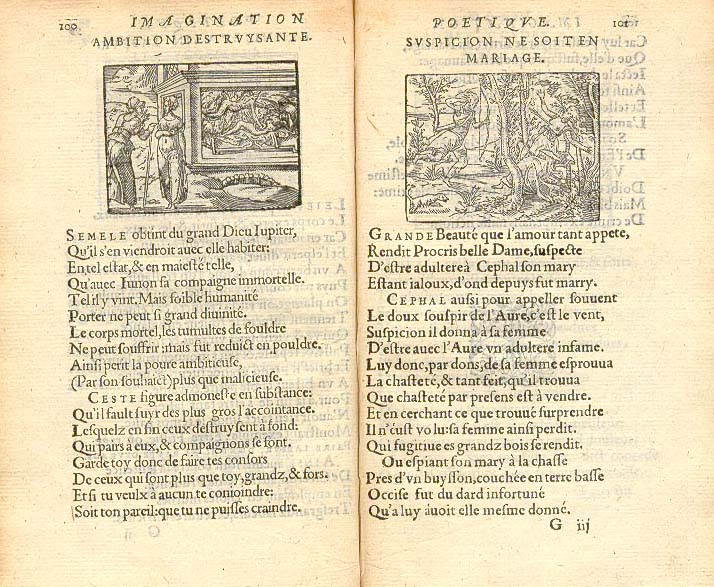 100
IMAGINATION
AMBITION DESTRVYSANTE.
SEMELE obtint du grand Dieu Iupiter,
Qu'il s'en viendroit auec elle habiter:
En tel estat, & en maiesté telle,
Qu'auec Iunon sa compaigne immortelle.
Tel il y vint. Mais foible humanité
Porter ne peut si grand diuinité.
Le corps mortel, les tumultes de fouldre
Ne peut souffrir: mais fut reduict en pouldre.
Ainsi perit la poure ambitieuse,
(Par son souhaict) plus que malicieuse.
CESTE figure admoneste en substance:
Qu'il fault fuyr des plus gros l'accointance.
Lesquelz en fin ceux destruysent à fond:
Qui pairs à eux, & compaignons se font.
Garde toy donc de faire tes consors
De ceux qui sont plus que toy, grandz, & fors.
Et si tu veulx à aucun te conioindre:
Soit ton pareil: que tu ne puisses craindre.
G
POETIQVE.
101
SVSPICION NE SOIT EN
MARIAGE.
GRANDE Beauté que l'amour tant appete,
Rendit Procris belle Dame, suspecte
D'estre adultere à Cephal son mary
Estant ialoux, d'ond depuys fut marry.
CEPHAL aussi pour appeller souuent
Le doux souspir de l'Aure, c'est le vent,
Suspicion il donna à sa femme
D'estre auec l'Aure vn adultere infame.
Luy donc, par dons, de sa femme esprouua
La chasteté, & tant feit, qu'il trouua
Que chasteté par presens est à vendre.
Et en cerchant ce que trouué surprendre
Il n'eust volu: sa femme ainsi perdit.
Qui fugitiue es grandz bois se rendit.
Ou espiant son mary à la chasse
Pres d'vn buysson, couchée en terre basse
Occise fut du dard infortuné
Qu'a luy auoit elle mesme donné.
G iij